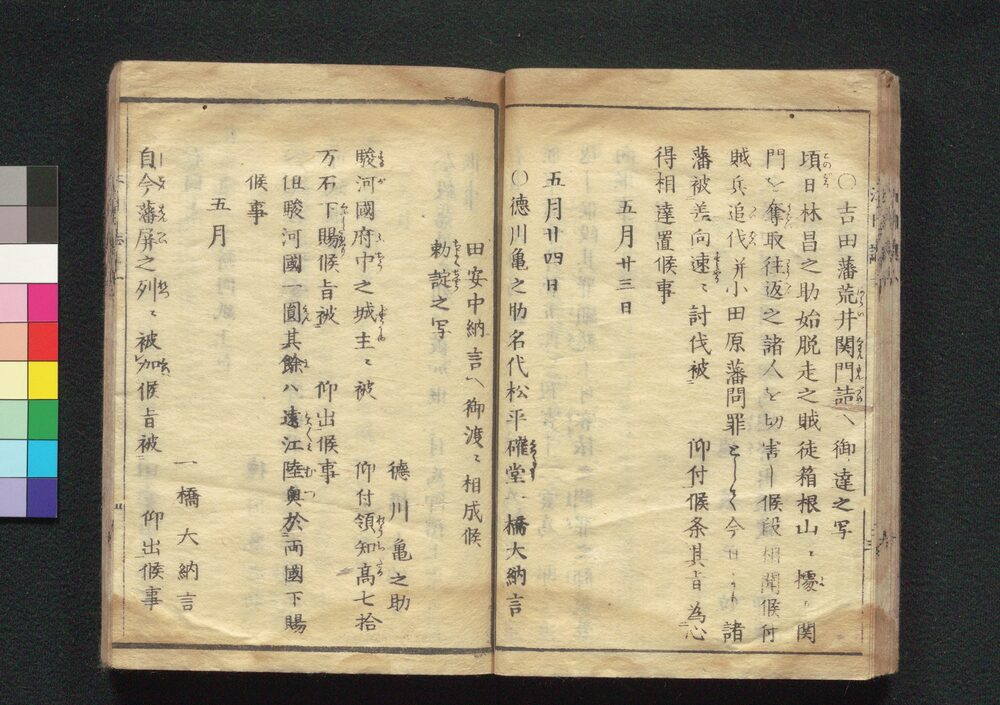 〇吉田藩荒井関門詰へ御達之写
頃日林昌之助始脱走之賊徒箱根山ニ據り関
門を奪取往返之諸人を切害し候段相聞候付
賊兵追伐并小田原藩問罪として今日より諸
藩被差向速ニ討伐被 仰付候条其旨為心
得相達置候事
五月廿三日
五月廿四日
〇徳川亀之助名代松平確堂一橋大納言
田安中納言へ御渡ニ相成候
勅諚之写
徳川亀之助
駿河國府中之城主ニ被 仰付領知高七拾
万石下賜候旨被 仰出候事
但駿河國一圓其餘ハ遠江陸奥於両國下賜
候事
五月
一橋大納言
自今藩屏之列ニ被加候旨被 仰出候事